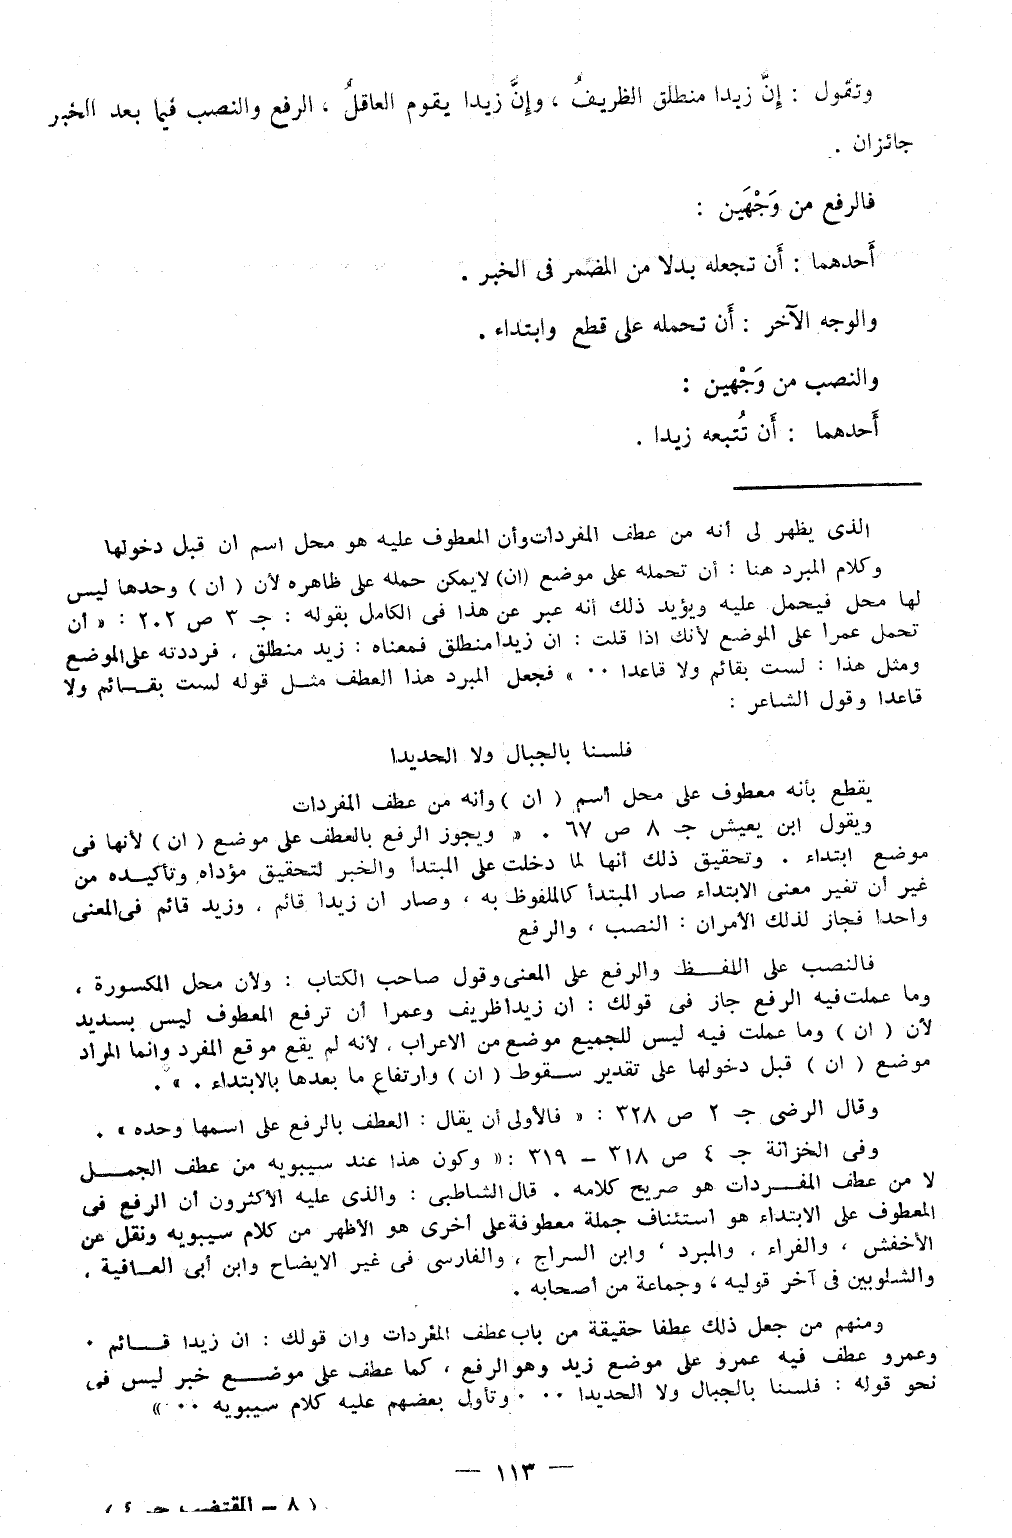 وتقول : إنَّ زيدا منطلق الظريفُ ، وإنَّ زيدا يقوم العاقلُ ، الرفع والنصب فيما بعد الخبر
جائزان .
فالرفع من وَجْهَين :
أَحدهما : أَن تجعله بدلا من المضمر فى الخبر .
والوجه الآخر : أَن تحمله على قطع وابتداء .
والنصب من وَجْهين :
أَحدهما : أَن تُتبعه زيدا .
الذى يظهر لى أنه من عطف المفردات وأن المعطوف عليه هو محل اسم ان قبل دخولها
وكلام المبرد هنا : أن تحمله على موضع (ان) لايمكن حمله على ظاهره لأن ( ان ) وحدها ليس
لها محل فيحمل عليه ويؤيد ذلك أنه عبر عن هذا فى الكامل بقوله : جـ ٣ ص ٢٠٢ : « أن
تحمل عمرا على الموضع لأنك اذا قلت : ان زيدا منطلق فمعناه : زيد منطلق ، فرددته على الموضع
ومثل هذا : لست بقائم ولا قاعدا ٠٠ » فجعل المبرد هذا العطف مثـل قوله لست بقـائم ولا
قاعدا وقول الشاعر :
فلسنا بالجبال ولا الحديدا
يقطع بأنه معطوف على محل اسم ( ان ) وأنه من عطف المفردات
ويقول ابن يعيش جـ ٨ ص ٦٧ . « ويجوز الرفع بالعطف على موضع ( ان ) لأنها فى
موضع ابتداء . وتحقيق ذلك أنها لما دخلت على المبتدأ والخبر لتحقيق مؤداه وتأكيـده من
غير أن تغير معنى الابتداء صار المبتدأ كالملفوظ به ، وصار ان زيدا قائم ، وزيد قائم فى المعنى
واحدا فجاز لذلك الأمران : النصب ، والرفع
فالنصب على اللفـظ والرفع على المعنى وقول صاحب الكتاب : ولأن محل المكسورة ،
وما عملت فيه الرفع جاز فى قولك : ان زيدا ظريف وعمرا أن ترفع المعطوف ليس بسديد
لأن ( ان ) وما عملت فيه ليس للجميع موضع من الاعراب ، لأنه لم يقع موقع المفرد وانما المراد
موضع ( ان ) قبل دخولها على تقدير سـقوط ( ان ) وارتفاع ما بعدها بالابتداء . » .
وقال الرضى جـ ٢ ص ٣٢٨ : « فالأولى أن يقال : العطف بالرفع على اسمها وحده » .
وفى الخزانة جـ ٤ ص ٣١٨ – ٣١٩ : « وكون هذا عند سيبويه من عطف الجمـل
لا من عطف المفـردات هو صريح كلامه . قال الشاطبى : والذى عليه الأكثرون أن الرفع فى
المعطوف على الابتداء هو استئناف جملة معطوفة على أخرى هو الأظهر من كلام سيبويه ونقل عن
الأخفش ، والفراء ، والمبرد ، وابن السراج ، والفارسى فى غير الايضاح وابن أبى العـافية ،
والشلوبين فى آخر قوليه ، وجماعة من أصحابه .
ومنهم من جعل ذلك عطفا حقيقة من باب عطف المفردات وان قولك : ان زيدا قـائم ٠
وعمرو عطف فيه عمرو على موضع زيد وهو الرفع ، كما عطف على موضـع خبر ليس فى
نحو قوله : فلسنا بالجبال ولا الحديدا ٠٠ ٠ وتأول بعضهم عليه كلام سيبويه ٠٠ »
— ١١٣ —
( ٨ – المقتضب جـ ٤ )